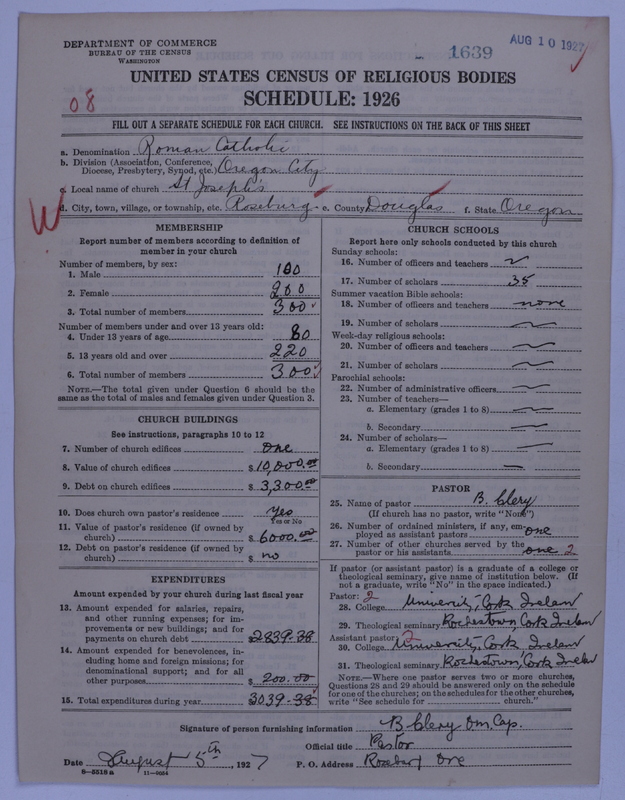 DEPARTMENT OF COMMERCE
BUREAU OF THE CENSUS
WASHINGTON
1639
AUG 10 1927
UNITED STATES CENSUS OF RELIGIOUS BODIES
SCHEDULE: 1926
08
FILL OUT A SEPARATE SCHEDULE FOR EACH CHURCH. SEE INSTRUCTIONS ON THE BACK OF THIS SHEET
a. Denomination Roman Catholic
b. Division (Association, Conference,
Diocese, Presbytery, Synod, etc.) Oregon City
c. Local name of church St Joseph's
W
d. City, town, village, or township, etc. Roseburg e. County Douglas f. State Oregon
MEMBERSHIP
Report number of members according to definition of
member in your church
Number of members, by sex:
1. Male 100
2. Female 200
3. Total number of members 300
Number of members under and over 13 years old:
4. Under 13 years of age 80
5. 13 years old and over 220
6. Total number of members 300
NOTE.—The total given under Question 6 should be
same as the total of males and females given under Question 3.
CHURCH BUILDINGS
See instructions, paragraphs 10 to 12
7. Number of church edifices one
8. Value of church edifices $ 10,000.00
9. Debt on church edifices $ 3,300.00
10. Does church own pastor's residence Yes
Yes or No
11. Value of pastor's residence (if owned by
church) $ 6000.00
12. Debt on pastor's residence (if owned by
church) $ no
EXPENDITURES
Amount expended by your church during last fiscal year
13. Amount expended for salaries, repairs,
and other running expenses; for im-
provements or new buildings; and for
payments on church debt 2839.38
14. Amount expended for benevolences, in-
cluding home and foreign missions; for
denominational support; and for all
other purposes $ 200.00
15. Total expenditures during year 3039.38
CHURCH SCHOOLS
Report here only schools conducted by this church
Sunday schools:
16. Number of officers and teachers
17. Number of scholars 35
Summer vacation Bible schools:
18. Number of officers and teachers none
19. Number of scholars
Week-day religious schools:
20. Number of officers and teachers
21. Number of scholars
Parochial schools:
22. Number of administrative officers
23. Number of teachers—
a. Elementary (grades 1 to 8)
b. Secondary
24. Number of scholars—
a. Elementary (grades 1 to 8)
b. Secondary
PASTOR
25. Name of pastor B. Clery
(If church has no pastor, write "None")
26. Number of ordained ministers, if any, em-
ployed as assistant pastors one
27. Number of other churches served by the
pastor or his assistants one 2
If pastor (or assistant pastor) is a graduate of a college or
theological seminary, give name of institution below. (If
not a graduate, write "No" in the space indicated.)
Pastor: 2
28. College University, Cork Irelan
29. Theological seminary Rochestown, Cork Irelan
Assistant pastor: 2
30. College University, Cork Irelan
31. Theological seminary Rochestown, Cork Irelan
NOTE.—Where one pastor serves two or more churches,
Questions 28 and 29 should be answered only on the schedule
for one of the churches; on the schedules for the other churches,
write "See schedule for church."
Signature of person furnishing information B Clery Om Cap.
Official title Pastor
Date August 5th, 1927 P. O. Address Roseburg Ore
8—5518a 11—9054